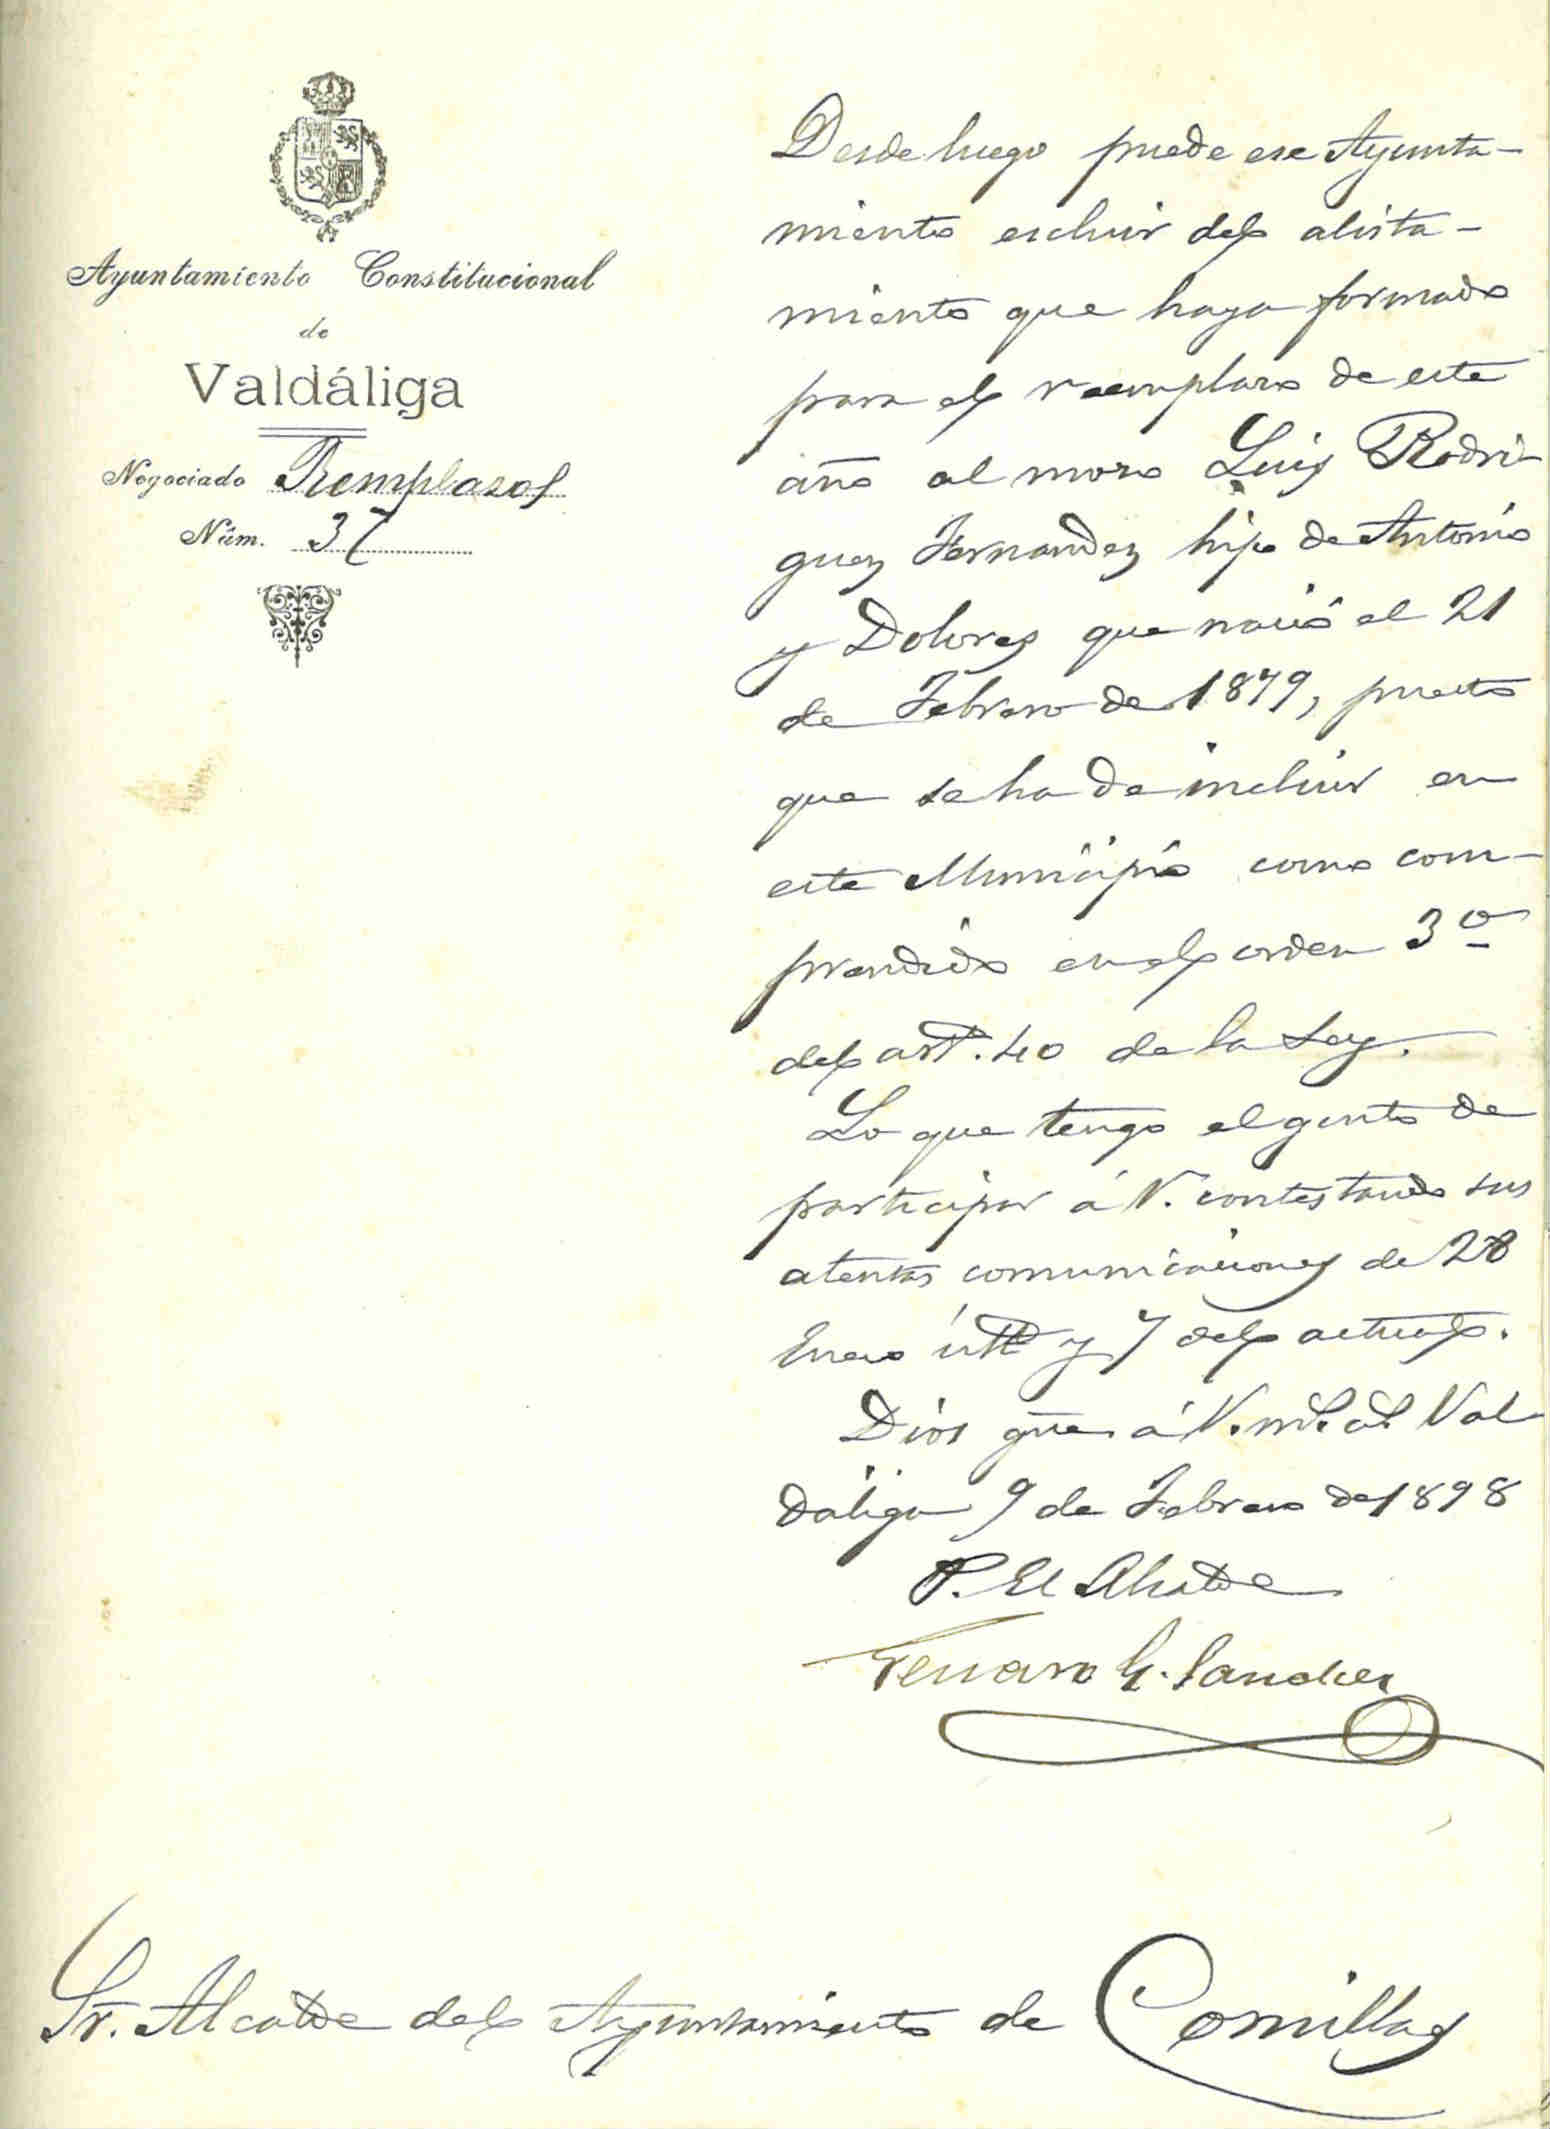 Ayuntamiento Constitucional
de
Valdáliga
Negociado Remplazos
Núm. 37
Desde luego puede ese Ayunta-
miento escluir del alista-
miento que haya formado
para el reemplazo de este
año al mozo Luis Rodri-
guez Fernandez hijo de Antonio
y Dolores que nació el 21
de Febrero de 1879, puesto
que se ha de incluir en
este Municipio como com-
prendido en el orden 3º
del art. 40 de la Ley.
Lo que tengo el gusto de
participar á V. contestando sus
atentas comunicaciones de 28
Enero últº y 7 del actual.
Dios gue á V. ms. as. Val
dáliga 9 de Febrero de 1898
P. El Alcalde
Genaro G. Sanchez
Sr. Alcalde del Ayuntamiento de Comillas